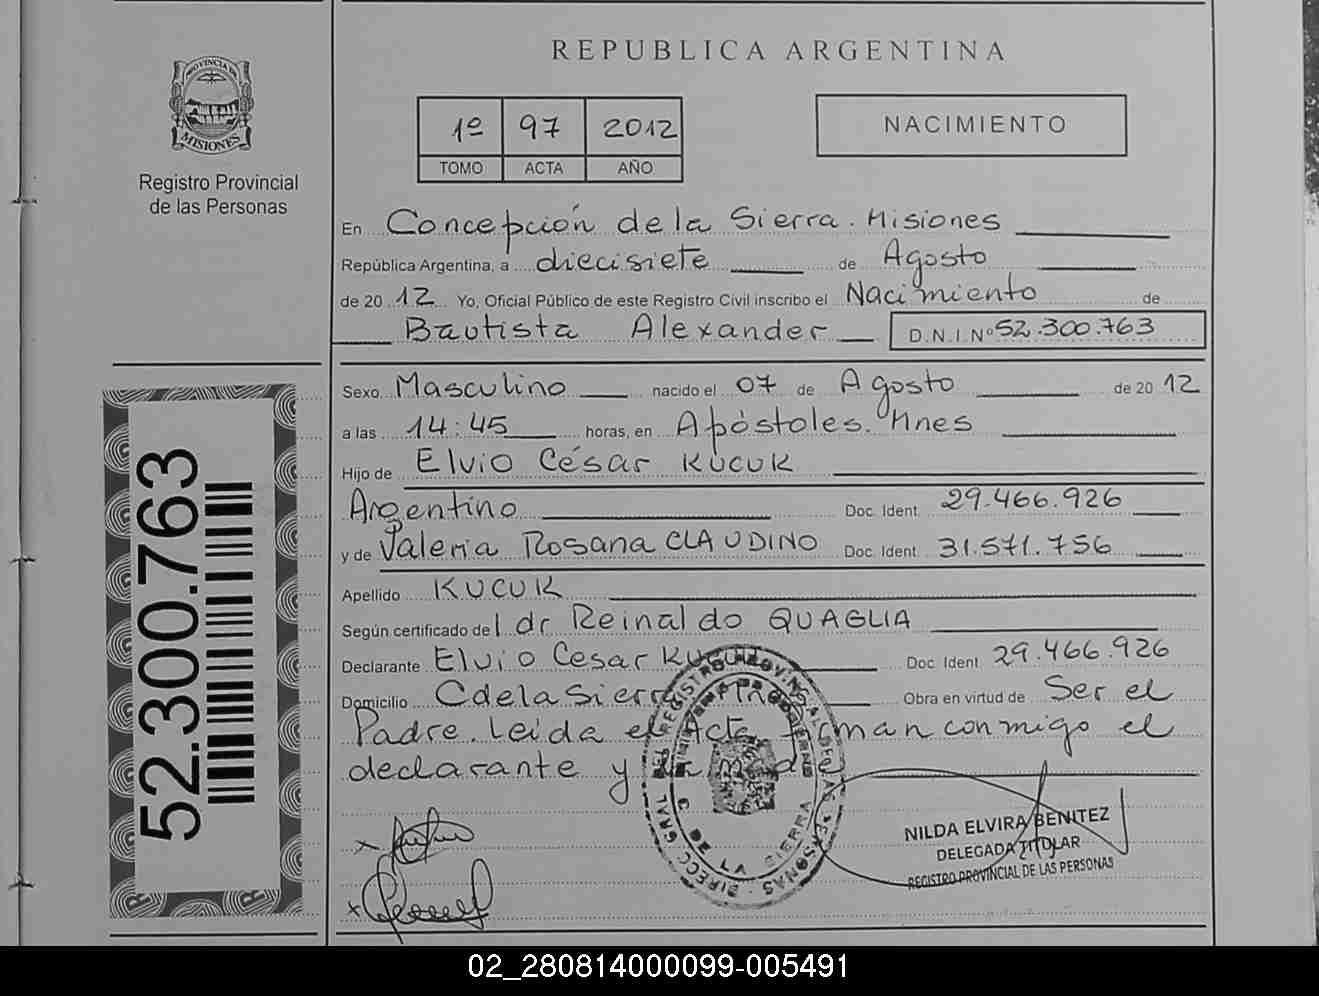 REPUBLICA ARGENTINA
PROVINCIA DE MISIONES
Registro Provincial
de las Personas
1º 97 2012
TOMO ACTA AÑO
NACIMIENTO
En Concepción de la Sierra. Misiones
República Argentina, a diecisiete de Agosto
de 2012 Yo, Oficial Público de este Registro Civil inscribo el Nacimiento de
Bautista Alexander D.N.I.Nº 52.300.763
Sexo Masculino nacido el 07 de Agosto de 2012
a las 14:45 horas, en Apóstoles. Mnes
Hijo de Elvio César KUCUK
Argentino Doc. Ident. 29.466.926
y de Valeria Rosana CLAUDINO Doc. Ident. 31.571.756
Apellido KUCUK
Según certificado del dr Reinaldo QUAGLIA
Declarante Elvio Cesar Kucuk Doc. Ident. 29.466.926
Domicilio C de la Sierra Obra en virtud de Ser el
Padre. Leída el Acta firman conmigo el
declarante y la madre
52.300.763
NILDA ELVIRA BENITEZ
DELEGADA TITULAR
REGISTRO PROVINCIAL DE LAS PERSONAS
DIRECC GRAL DEL REGISTRO PROVINCIAL DE LAS PERSONAS
C DE LA SIERRA
02_280814000099-005491